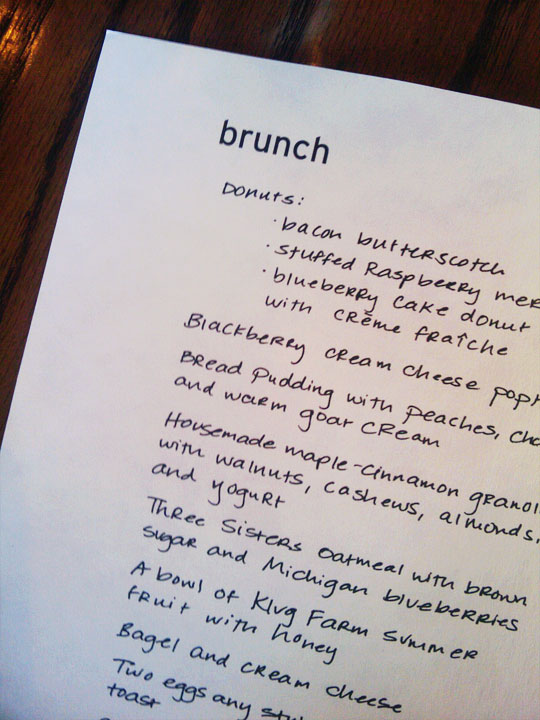 brunch
Donuts:
· bacon butterscotch
· stuffed Raspberry mer
· blueberry cake donut
with crème fraîche
Blackberry cream cheese pop
Bread pudding with peaches, cho
and warm goat cream
Housemade maple-cinnamon granol
with walnuts, cashews, almonds,
and yogurt
Three Sisters oatmeal with brown
sugar and Michigan blueberries
A bowl of Klug Farm summer
fruit with honey
Bagel and cream cheese
Two eggs any sty
toast